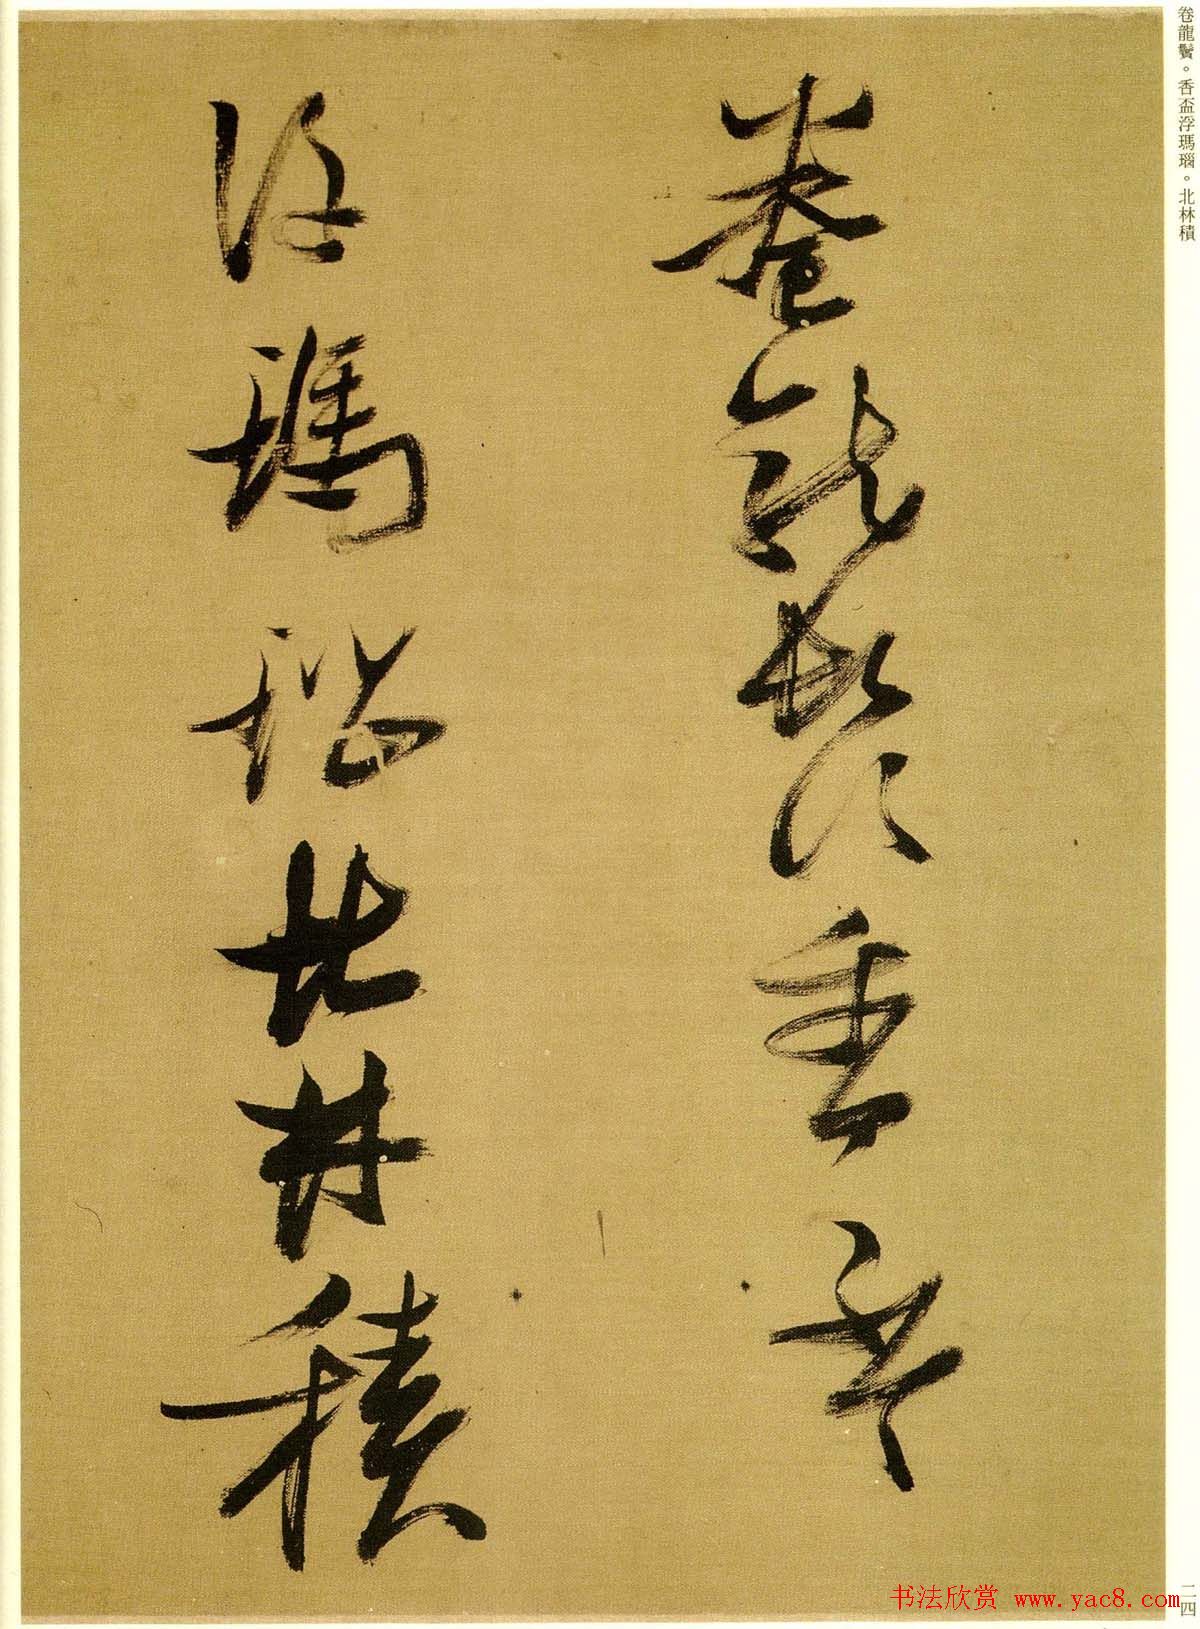 卷龍鬢。香盃浮瑪瑙。北林積
卷龍鬢香盃
浮瑪瑙北林積
二四
书法欣赏 www.yac8.com